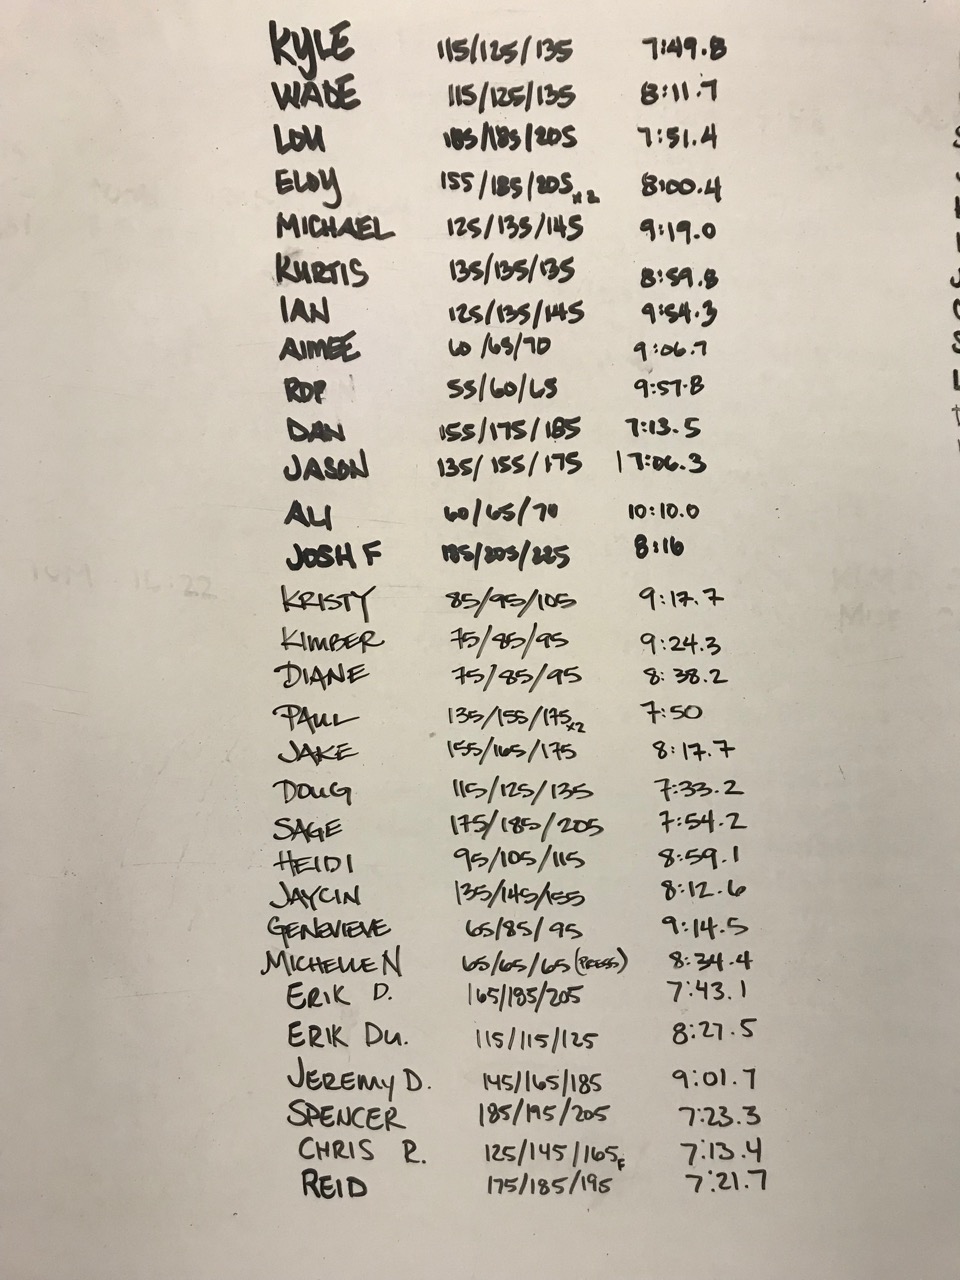 KYLE 115/125/135 7:49.8
WADE 115/125/135 8:11.7
LOU 185/185/205 7:51.4
ELOY 155/185/205 x2 8:00.4
MICHAEL 125/135/145 9:19.0
KURTIS 135/135/135 8:59.8
IAN 125/135/145 9:54.3
AIMEE 60/65/70 9:06.7
ROP 55/60/65 9:57.8
DAN 155/175/185 7:13.5
JASON 135/155/175 17:06.3
ALI 60/65/70 10:10.0
JOSH F 185/205/225 8:16
KRISTY 85/95/105 9:17.7
KIMBER 75/85/95 9:24.3
DIANE 75/85/95 8:38.2
PAUL 135/155/175 x2 7:50
JAKE 155/165/175 8:17.7
DOUG 115/125/135 7:33.2
SAGE 175/185/205 7:54.2
HEIDI 95/105/115 8:59.1
JAYCIN 135/145/155 8:12.6
GENEVIEVE 65/85/95 9:14.5
MICHELLE N 65/65/65 (PRESS) 8:34.4
ERIK D. 165/185/205 7:43.1
ERIK DU. 115/115/125 8:27.5
JEREMY D. 145/165/185 9:01.7
SPENCER 185/195/205 7:23.3
CHRIS R. 125/145/165F 7:13.4
REID 175/185/195 7:21.7